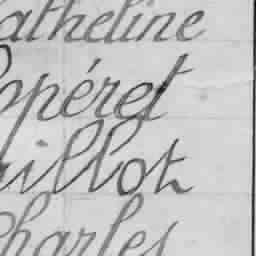 atheline
opéret
uillot
Charles